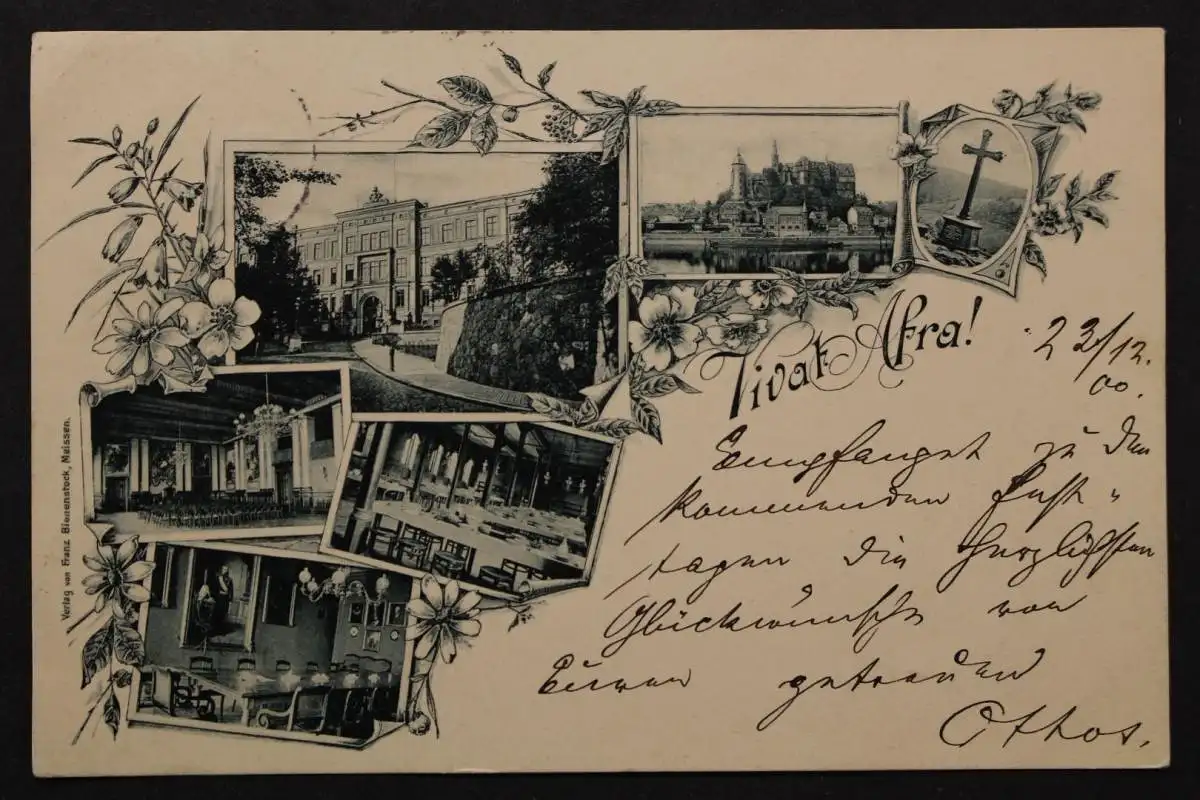 Vivat Afra!
23/12.
00.
Empfanget zu den
kommenden Fest-
tagen die herzlichsten
Glückwünsche von
Eurem getreuen
Othos.
Verlag von Franz Bienenstock, Meissen.